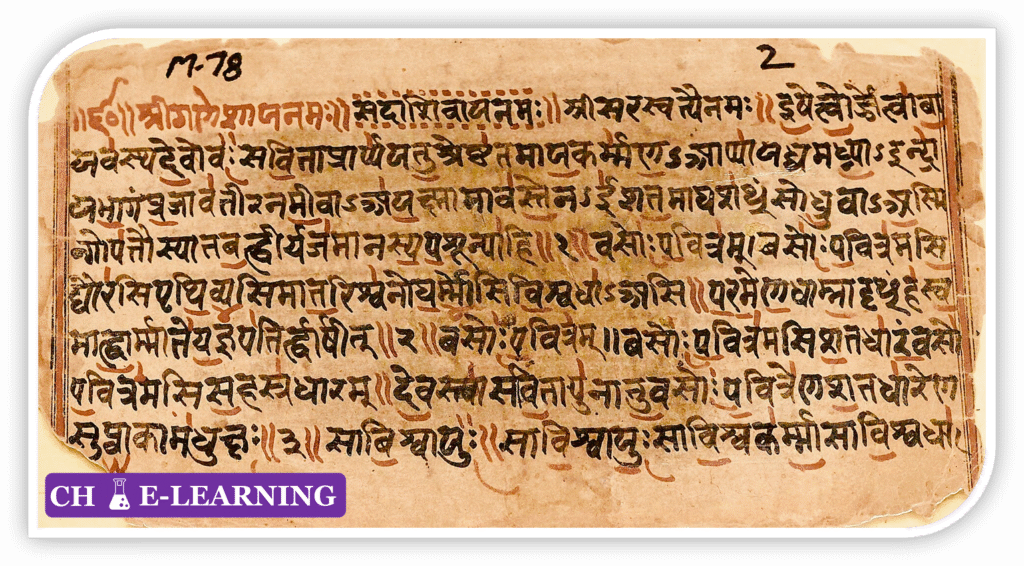 M-78 2
॥६०॥श्रीगणेशायनमः॥सदाशिवायनमः॥श्रीसरस्वत्यैनमः॥इषेत्वोर्ज्जेत्वावा
यवस्यदेवोवःसविताप्रार्प्पयतुश्रेष्ठतमायकर्म्मणऽआप्यायध्वमघ्न्याऽइन्द्रा
यभागंप्रजावतीरनमीवाऽअयक्ष्मामावस्तेनऽईशतमाघशꣳसोध्रुवाऽअस्मि
न्गोपतौस्यातबह्वीर्यजमानस्यपशून्पाहि॥१॥वसोःपवित्रम्।वसोःपवित्रमसि
द्यौरसिपृथिव्यसिमातरिश्वनोघर्म्मोसिविश्वधाऽअसि॥परमेणधाम्नादृꣳहस्व
माह्वार्म्मातेयज्ञपतिर्ह्वार्षीत्॥२॥वसोःपवित्रम्॥वसोःपवित्रमसिशतधारंवसोः
पवित्रमसिसहस्रधारम्॥देवस्त्वासवितापुनातुवसोःपवित्रेणशतधारेण
सुप्वाकामधुक्षः॥३॥साविश्वायुः॥साविश्वायुःसाविश्वकर्म्मासाविश्वधा
CH E-LEARNING